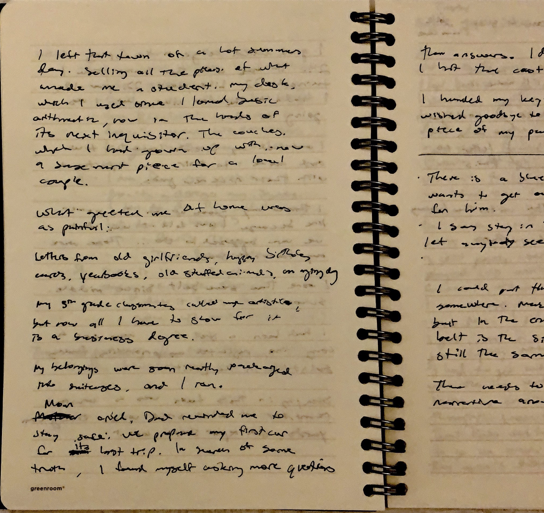 I left that town on a hot summer
day. Selling all the pieces of what
made me a student. my desk,
which I used since I loved basic
arithmetic, now in the hands of
its next inquisitor. The couches
which I had grown up with.. now
a basement piece for a local
couple.
What greeted me at home was
as painful:
Letters from old girlfriends, happy birthday
cards, yearbooks, old stuffed animals, an aging dog
my 5th grade classmates called me artistic,
but now all I have to show for it
is a business degree.
My belongings were soon neatly packaged
into suitcases, and I ran.
Mom
cried. Dad reminded me to
stay safe. we prepare my first car
for its last trip. In search of some
truth, I found myself asking more questions
greenroom
than answers. I
I lost the
I handed my key
wished goodbye to
piece of my
There is a
wants to get
for him.
I say stay in
let anybody see
I could put th
somewhere.
but in the
belt is the
still the same
There needs to
narrative